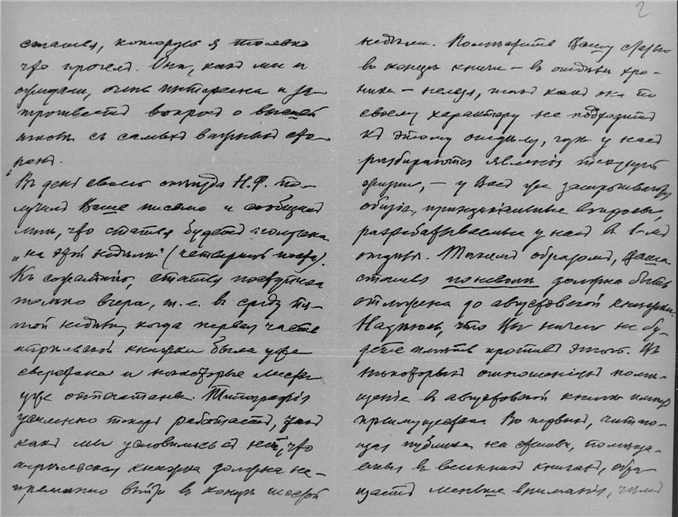 статья, которую я только
что прочел. Она, как мы и
ожидали, очень интересна и за-
трогивает вопрос о высшей
школе съ самыхъ важныхъ сто-
ронъ.
Въ день своего отъезда Н.Ф. по-
лучил Ваше письмо и сообщил
мнѣ, что статья будетъ
"на этой недѣлѣ" (четвертой поста).
Къ сожалѣнію, статья
только вчера, т.е. въ среду пя-
той недѣли, когда первая часть
книжки была уже
сверстана и некоторые листы
уже отпечатаны. Типографія
усиленно теперь работаетъ, такъ
какъ мы условились съ ней, что
книжка должна не-
премѣнно выйти въ концѣ шестой
недѣли. Помѣстить Вашу статью
въ концѣ книги — въ отдѣлѣ хро-
ники — нельзя, такъ какъ она по
своему характеру не подходитъ
къ этому отдѣлу, гдѣ у насъ
разбираются явленія текущей
жизни, — у Васъ же затрагиваются
общіе, принципіальные вопросы,
у насъ въ
отдѣлѣ. Такимъ образомъ, Ваша
статья поневолѣ должна быть
отложена до августовской книжки.
Надѣюсь, что Вы ничего не бу-
дете имѣть противъ этого. Въ
некоторыхъ отношеніяхъ помѣ-
щеніе въ августовской книжкѣ имѣетъ
преимущества. Во первыхъ, читаю-
щая публика на статьи, помѣща-
емыя въ весеннихъ книгахъ, обра-
щаетъ меньше вниманія, чѣмъ
2